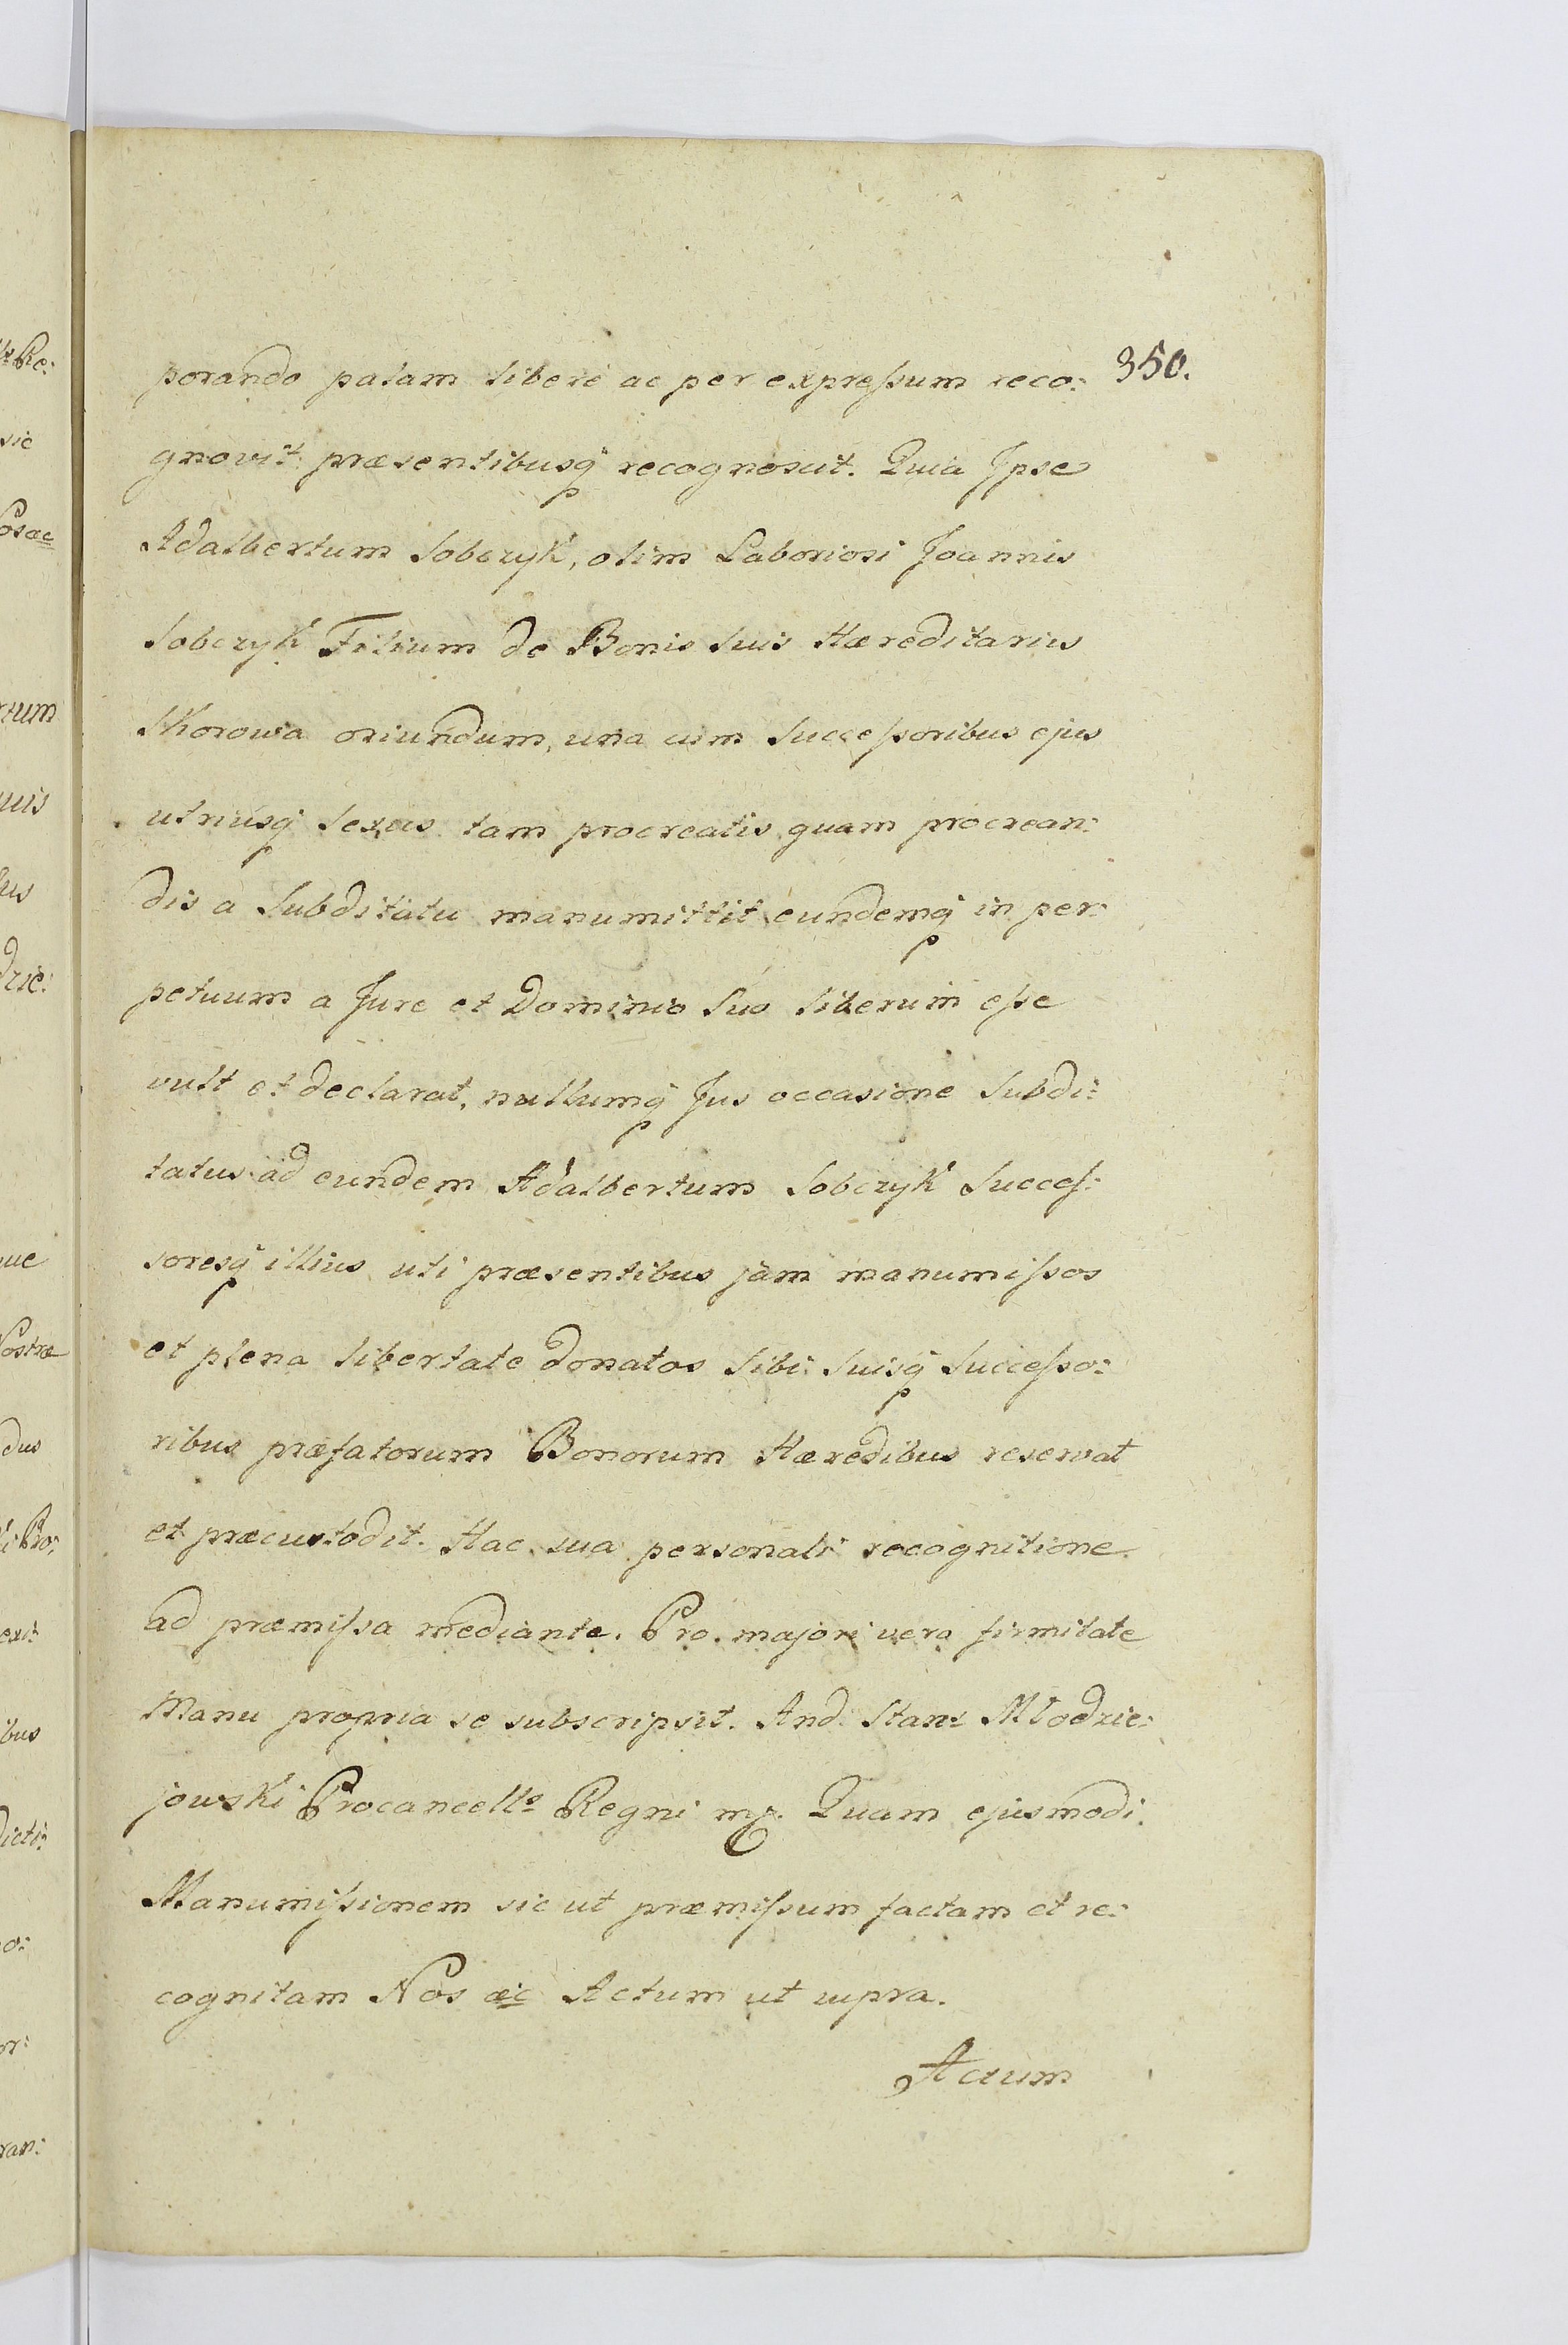 350.
porando palam libere ac per expreſsum reco:
gnovit præsentibusq recognoscit. Quia Ipse
Adalbertum Sobczyk, olim Laboriosi Joannis
Sobczyk Filium de Bonis Suis Hæreditariis
Skorowa oriundum, una cum Succeſsoribus ejus
utriusq Sexus tam procreatis quam procrean:
dis a Subditatu manumittit eundemq in per:
petuum a Jure et Dominio Suo liberum eſse
vult et declarat, nullumq Jus occasione Subdi:
tatus ad eundem Adalbertum Sobczyk Succeſ:
soresq illius uti præsentibus jam manumiſsos
et plena libertate donatos Sibi Suisq Succeſso:
ribus præfatorum Bonorum Hæredibus reservat
et præcustodit. Hac sua personali recognitione
ad præmiſsa mediante. Pro majori vero firmitate
Manu propria se subscripsit. And: Stan: Młodzie:
jowski Procancells Regni mp. Quam ejusmodi
Manumiſsionem sic ut præmiſsum factam et re:
cognitam Nos æc Actum ut supra.
Actum